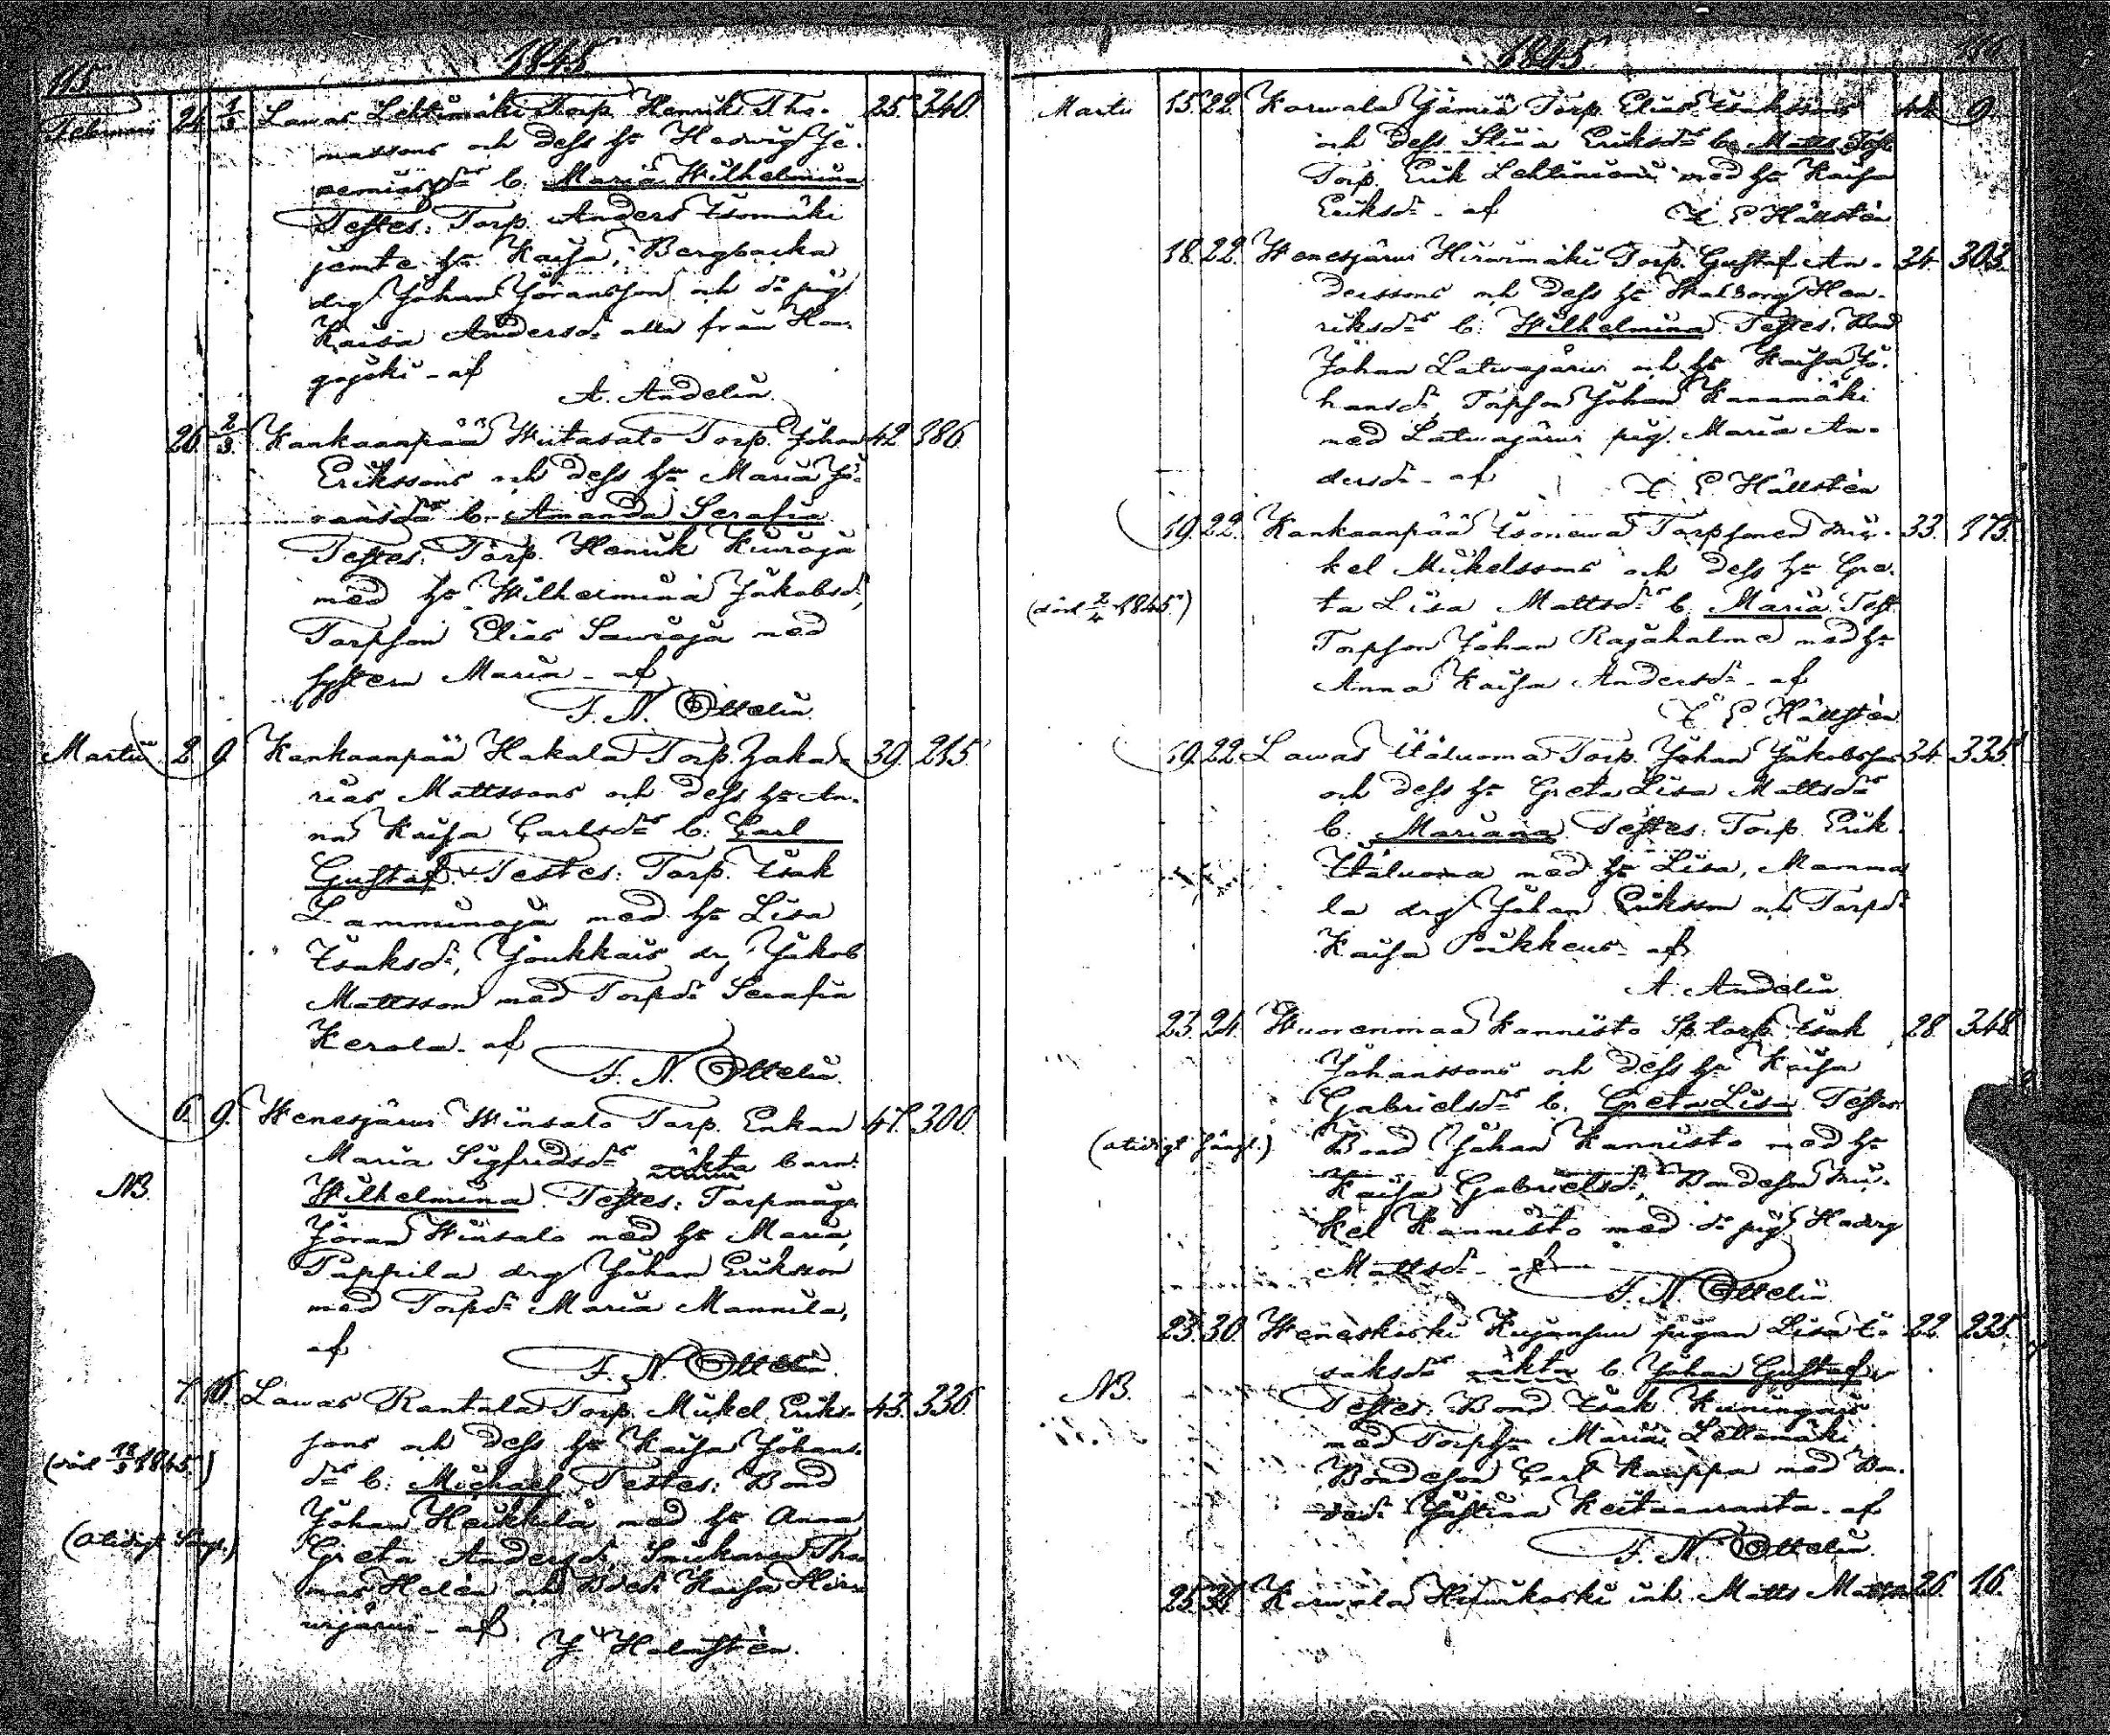 115 1845
Februari 24 1/3 Lawas Lehtimäki Torp. Henrik Tho- 25. 340.
massons och dess h:u Hedvig Je-
remiæd:rs b. Maria Wilhelmina
Testes: Torp. Anders Isomäki
jemte h:u Kajsa, Bergbacka
drg Johan Jöransson och d:o pig.
Kaisa Andersd:r alla från Hon-
gojoki - af
A. Andelin.
26. 2/3. Kankaanpää Wiitasalo Torp. Johan 42 386
Erikssons och dess h:u Maria Jö-
ransd:rs b. Amanda Serafia
Testes: Torp. Henrik Kuiroja
med h:u Wilhelmina Jakobsd:r,
Torpson Elias Sawioja med
systern Maria - af
F. N. Ottelin.
Martii 2. 9. Kankaanpää Hakala Torp. Zaka- 39. 215.
rias Mattssons och dess h:u An-
na Kajsa Carlsd:rs b: Carl
Gustaf. Testes: Torp. Isak
Lamminoja med h:u Lisa
Isaksd:r, Joukkais drg Jakob
Mattsson med Torpd:r Serafia
Kerola - af
F. N. Ottelin.
6. 9. Wenesjärvi Wiinsalo Torp. Enkan 47. 300.
Maria Sigfridsd:rs oäkta barn:
NB. Wilhelmina. Testes: Torpmåge
Jöran Wiinsalo med h:u Maria,
Pappila drg Johan Eriksson
med Torpd:r Maria Mannila,
af
F. N. Ottelin.
7. 16. Lawas Rantala Torp. Mikel Eriks- 43. 336.
sons och dess h:u Kajsa Johans-
(död 18/3 1845.) d:rs b: Michael Testes: Bond
Johan Heikkilä med h:u Anna
Greta Andersd:r, Snickaren Tho-
mas Helén och Bd:r Kajsa Hir-
wijärwi - af
J. Holmstén.
1845 116
Martii 15 22. Karwala Jämiä Torp. Elias Isakssons 44. 9.
och dess Stina Eriksd:rs b. Matts Test
Torp. Erik Lehtiniemi med h:u Kajsa
Eriksd:r - af
F. E. Hällstén
18. 22. Wenesjärwi Hirwimäki Torp. Gustaf An- 34. 303.
derssons och dess h:u Walborg Hen-
riksd:rs b: Wilhelmina. Testes: Bond
Johan Latwajärwi och h:u Kajsa Jo-
hansd:r, Torpson Johan Kanamäki
med Latwajärwi pig. Maria An-
dersd:r - af
F. E. Hällstén
19. 22. Kankaanpää Isonewa Torpsonen Mi- 33. 173.
kel Mikelssons och dess h:u Gre-
(död 2/4 1845.) ta Lisa Mattsd:rs b. Maria Test
Torpson Johan Rajahalme med h:u
Anna Kajsa Andersd:r - af
F. E. Hällstén
19. 22. Lawas Itäluoma Torp. Johan Jakobssons 34. 335.
och dess h:u Greta Lisa Mattsd:rs
b. Mariana Testes: Torp. Erik
Itäluoma med h:u Lisa, Mamma
la drg Johan Eriksson och Torpd:r
Kajsa Pukkeus - af
A. Andelin
23. 24. Wuorenmaa Kannisto Sp.torp. Isak 28. 348.
Johanssons och dess h:u Kajsa
Gabrielsd:rs b. Greta Lisa Testes
Bond Johan Kannisto med h:u
Kajsa Gabrielsd:r, Bondeson Mi-
kel Kannisto med d:o pig Hedvig
Mattsd:r - af
F. N. Ottelin.
23. 30. Weneskoski Kujansuu pigan Lisa I- 22. 235.
saksd:rs oäkta b. Johan Gustaf
NB. Testes: Bond Isak Kuningas
med Torph:u Maria Lettamäki
Bondeson Carl Kauppa med Bon-
ded:r Justina Keitaanranta - af
F. N. Ottelin.
25. 31. Karwala Hiiwikoski inh. Matts Matts 26. 16.